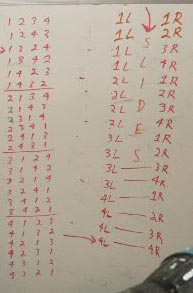 1 2 3 4
1 2 4 3
1 3 2 4
1 3 4 2
1 4 2 3
1 4 3 2
2 1 3 4
2 1 4 3
2 3 1 4
2 3 4 1
2 4 1 3
2 4 3 1
3 1 2 4
3 1 4 2
3 2 1 4
3 2 4 1
3 4 1 2
3 4 2 1
4 1 2 3
4 1 3 2
4 2 1 3
4 2 3 1
4 3 1 2
4 3 2 1
1L 1R
1L 2R
1L 3R
1L 4R
2L 1R
2L 2R
2L 3R
2L 4R
3L 1R
3L 2R
3L 3R
3L 4R
4L 1R
4L 2R
4L 3R
4L 4R
SLIDES